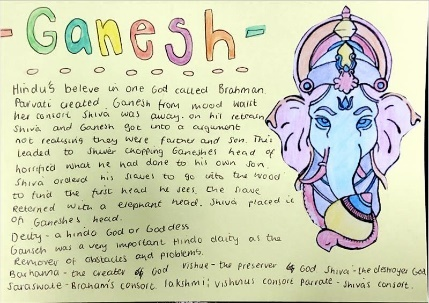 -Ganesh-
Hindu's believe in one God called Brahman.
Parvati created Ganesh from mood waist
her consort Shiva was away. on his retrain
Shiva and Ganesh got into a argument
not realising they were farther and son. This
leaded to Shiver chopping Ganeshes head of
horrified what he had done to his own son.
Shiva orderd his slaves to go into the wood
to find the first head he sees. the slave
retorned with a elephant head. Shiva placed it
on Ganeshes head.
Deity - a hindo God or Goddess
Ganesh was a very important Hindo deity as the
Remover of obstacles and problems.
- the creater of God Vishue - the preserver of God Shiva - the destroyer God
Saraswate - Braham's consort. lakshmi; Vishunus consort Parvati - Shiva's consort.